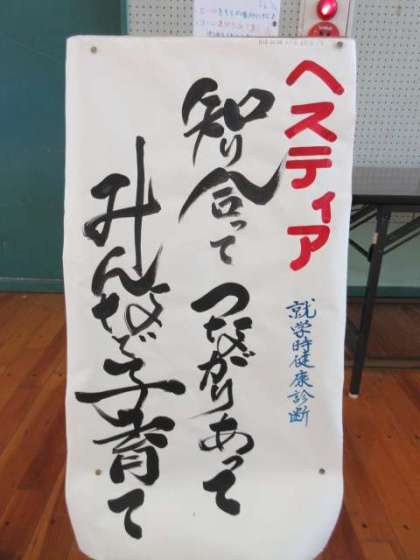 ヘスティア
就学時健康診断
知り合って つながりあって
みんなで子育て